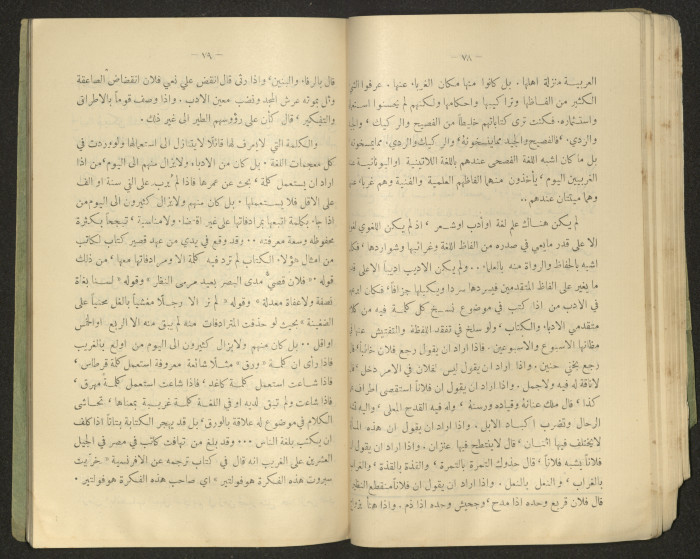 — ٧٨ —
العربية منزلة اهلها . بل كانوا منها مكان الغرباء عنها . عرفوا
الكثير من الفاظها وتراكيبها واحكامها ولكنهم لم يحسنوا
واستثماره . فكنت ترى كتاباتهم خليطاً من الفصيح والركيك ، والجيد
والردي . فالفصيح والجيد مما ينسخونه ، والركيك والردي مما
بل ما كان اشبه اللغة الفصحى عندهم باللغة اللاتينية او اليونانية
الغربيين اليوم ، يأخذون منهما الفاظهم العلمية والفنية وهم
وهما ميتتان عندهم ..
لم يكن هناك علم لغة او أدب او شعر ، اذ لم يكن اللغوي
الا على قدر ما يعي في صدره من الفاظ اللغة وغرائبها وشواردها ،
اشبه بالحفاظ والرواة منه بالعلماء .. ولم يكن الاديب اديباً الا على
ما يغير على الفاظ المتقدمين فيسردها سرداً ويكيلها جزافاً ،
في الادب من اذا كتب في موضوع نسخ كل كلمة فيه من
متقدمي الادباء والكتاب ، ولو سلخ في تفقد اللفظة والتفتيش عنها
مظانها الاسبوع والاسبوعين . فاذا اراد ان يقول رجع فلان خائباً ،
رجع بخفي حنين . واذا اراد ان يقول ليس لفلان في الامر دخل ،
لا ناقة له فيه ولا جمل . واذا اراد ان يقول ان فلاناً استقصى اطراف
كذا ، قال ملك عنانه وقياده ورسنه ، وله فيه القدح المعلى ، واليه
الرحال وتضرب اكباد الابل . واذا اراد ان يقول ان هذه
لا يختلف فيها اثنان ، قال لا ينتطح فيها عنزان . واذا اراد ان يقول
فلاناً يشبه فلاناً ، قال حذوك التمرة بالتمرة ، والقذة بالقذة ،
بالغراب ، والنعل بالنعل . واذا اراد ان يقول ان فلاناً منقطع النظير
قال فلان قريع وحده اذا مدح ، وجحيش وحده اذا ذم . واذا هنأ
— ٧٩ —
قال بالرفاء والبنين ، واذا رثى قال انقض علي نعي فلان انقضاض الصاعقة
وثل بموته عرش المجد ونضب معين الادب . واذا وصف قوماً بالاطراق
والتفكير ، قال كأن على رؤوسهم الطير الى غير ذلك .
والكلمة التي لا يعرف لها قائلاً لا يتنازل الى استعمالها ولو وردت في
كل معجمات اللغة . بل كان من الادباء ولا يزال منهم الى اليوم ، من اذا
اراد ان يستعمل كلمة ، بحث عن عمرها فاذا لم يُرب على التي سنة او الف
على الاقل فلا يستعملها . بل كان منهم ولا يزال كثيرون الى اليوم من
اذا جاء بكلمة اتبعها بمرادفاتها على غير اقتضاء ولا مناسبة ، تبجحاً بكثرة
محفوظه وسعة معرفته .. وقد وقع في يدي من عهد قصير كتاب لكاتب
من امثال هؤلاء الكتاب لم ترد فيه كلمة الا ومرادفاتها معها ، من ذلك
قوله « فلان قصيّ مدى البصر بعيد مرمى النظر » وقوله « لسنا بغاة
نصفة ولا عفاة معدلة » وقوله « لم نر الا رجلاً مغشياً بالغل محنياً على
الضغينة » بحيث لو حذفت المترادفات منه لم يبق منه الا الربع او الخمس
او اقل .. بل كان منهم ولا يزال كثيرون الى اليوم من اولع بالغريب
فاذا رأى ان كلمة « ورق » مثلاً شائعة معروفة استعمل كلمة قرطاس ،
فاذا شاعت استعمل كلمة كاغد ، فاذا شاعت استعمل كلمة مهرق ،
فاذا شاعت ولم تبق لديه او في اللغة كلمة غريبة بمعناها ، تحاشى
الكلام في موضوع له علاقة بالورق ، بل قد يهجر الكتابة بتاتاً اذا كلف
ان يكتب بلغة الناس ... وقد بلغ من تهافت كاتب في مصر في الجيل
العشرين على الغريب انه قال في كتاب ترجمه عن الافرنسية « خرّيت
سبروت هذه الفكرة هو فولتير » اي صاحب هذه الفكرة هو فولتير .